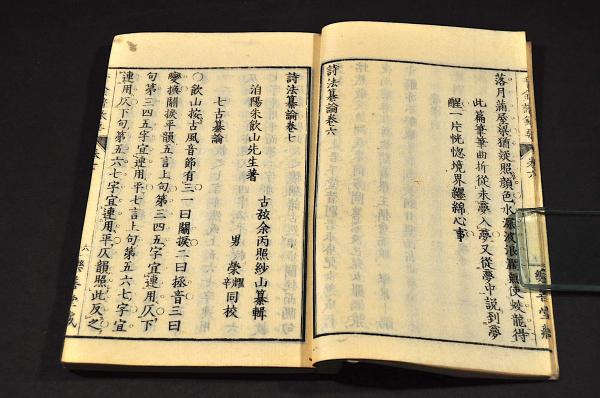 落月滿屋梁猶疑照顏色水深波浪闊無使蛟龍得
此篇筆筆曲折從未夢入夢又從夢中說到夢
醒一片恍惚境界纏綿心事
詩法纂論卷六
詩法纂論卷七
泊陽朱飲山先生著
古弦余丙照紗山纂輯
男
榮耀
同校
七古纂論
飲山按古風音節有三一曰關捩二曰拯音三曰
變換關捩平韻五言上句第三四五字宜連用仄下
句第三四五字宜連用平七言上句第五六七字宜
連用仄下句第五六七字宜連用平仄韻照此反之
六